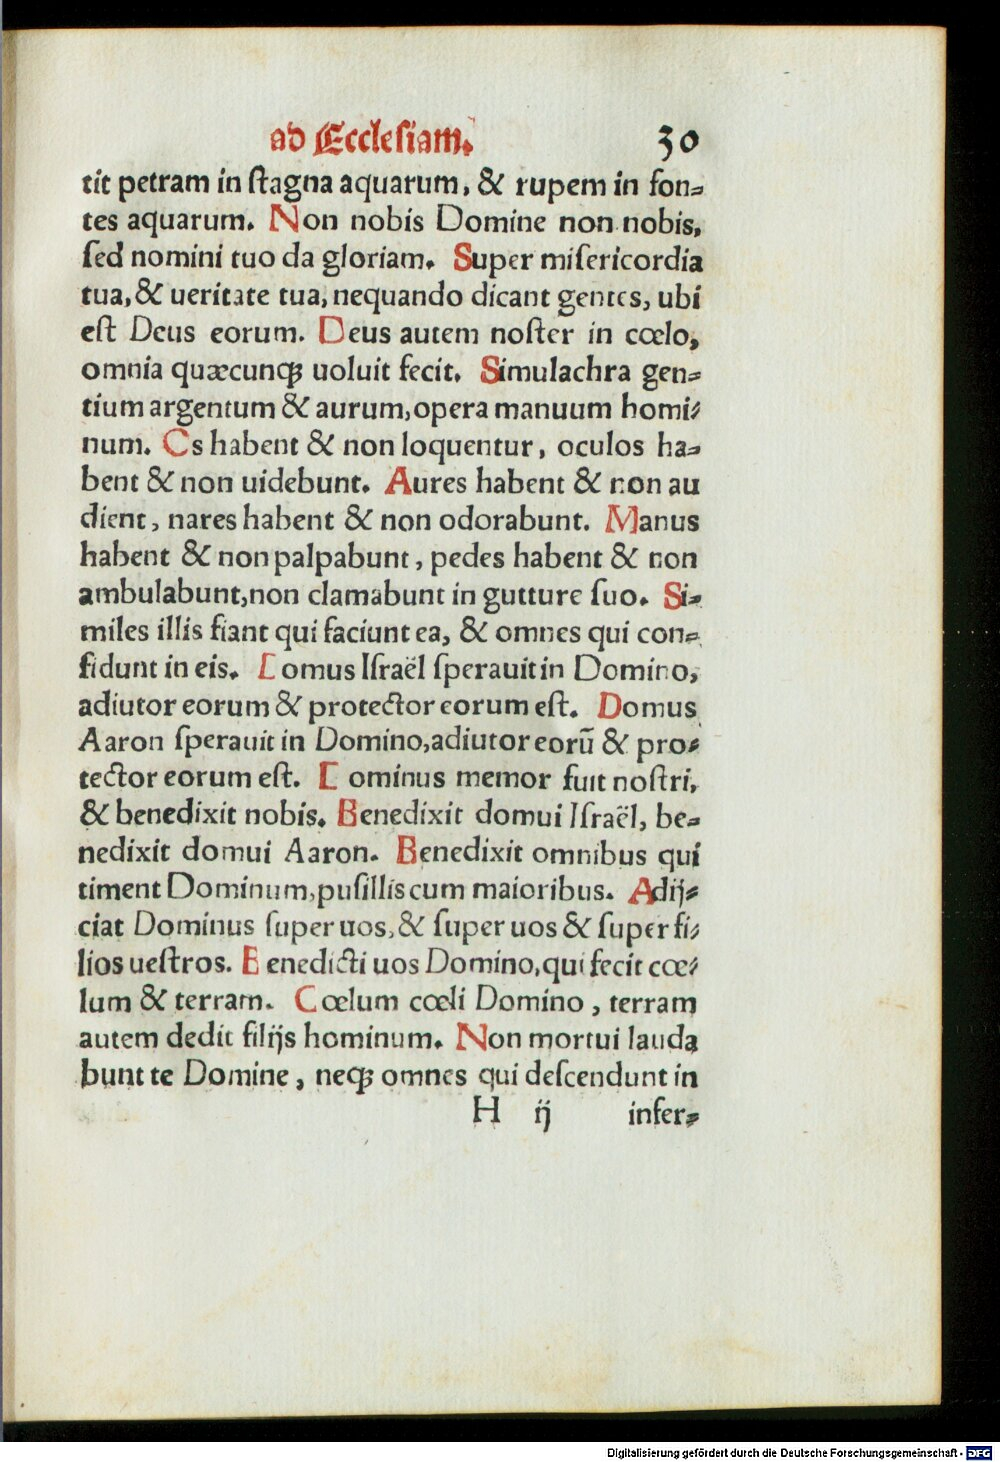 ad Ecclesiam. 30
tit petram in ſtagna aquarum, & rupem in fon⸗
tes aquarum. Non nobis Domine non nobis,
ſed nomini tuo da gloriam. Super miſericordia
tua, & ueritate tua, nequando dicant gentes, ubi
eſt Deus eorum. Deus autem noſter in cœlo,
omnia quæcunqꝫ uoluit fecit. Simulachra gen⸗
tium argentum & aurum, opera manuum homi⸗
num. Os habent & non loquentur, oculos ha⸗
bent & non uidebunt. Aures habent & non au
dient, nares habent & non odorabunt. Manus
habent & non palpabunt, pedes habent & non
ambulabunt, non clamabunt in gutture ſuo. Si⸗
miles illis fiant qui faciunt ea, & omnes qui con⸗
fidunt in eis. Domus Iſraël ſperauit in Domino,
adiutor eorum & protector eorum eſt. Domus
Aaron ſperauit in Domino, adiutor eorū & pro⸗
tector eorum eſt. Dominus memor fuit noſtri,
& benedixit nobis. Benedixit domui Iſraël, be⸗
nedixit domui Aaron. Benedixit omnibus qui
timent Dominum, puſillis cum maioribus. Adij⸗
ciat Dominus ſuper uos, & ſuper uos & ſuper fi⸗
lios ueſtros. Benedicti uos Domino, qui fecit cœ⸗
lum & terram. Cœlum cœli Domino, terram
autem dedit filijs hominum. Non mortui lauda
bunt te Domine, neqꝫ omnes qui deſcendunt in
H ij infer⸗
Digitalisierung gefördert durch die Deutsche Forschungsgemeinschaft - DFG